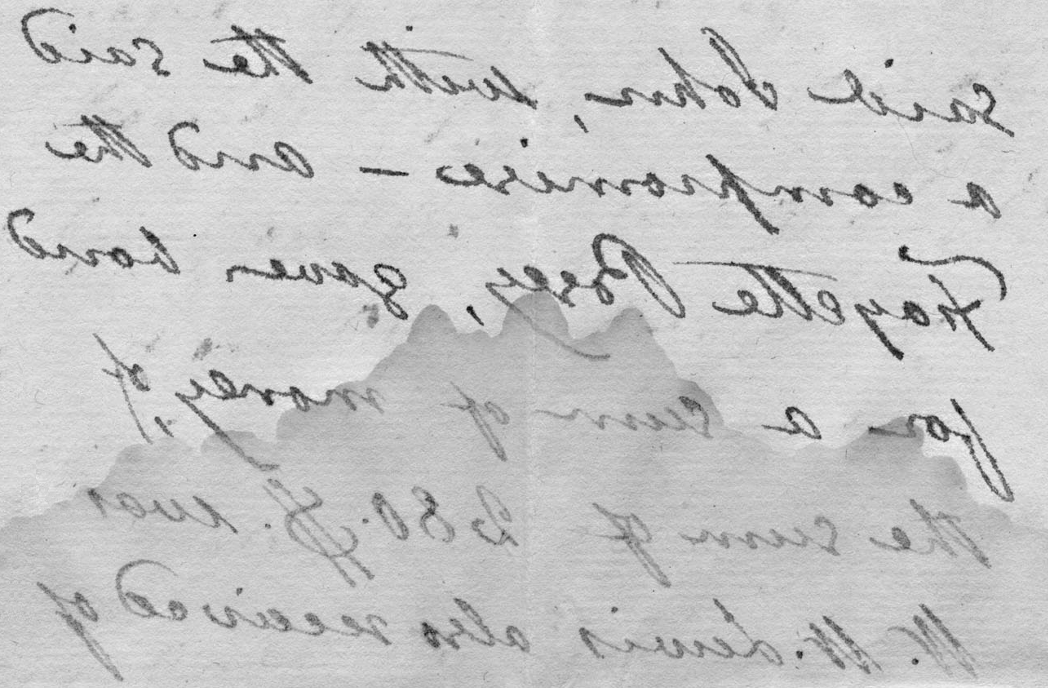 said John, with the said
a compromise – and the
Fayette Posey, gaven bond
for a sum of money, of
the sum of 280. was
W. W. Lewis also received of